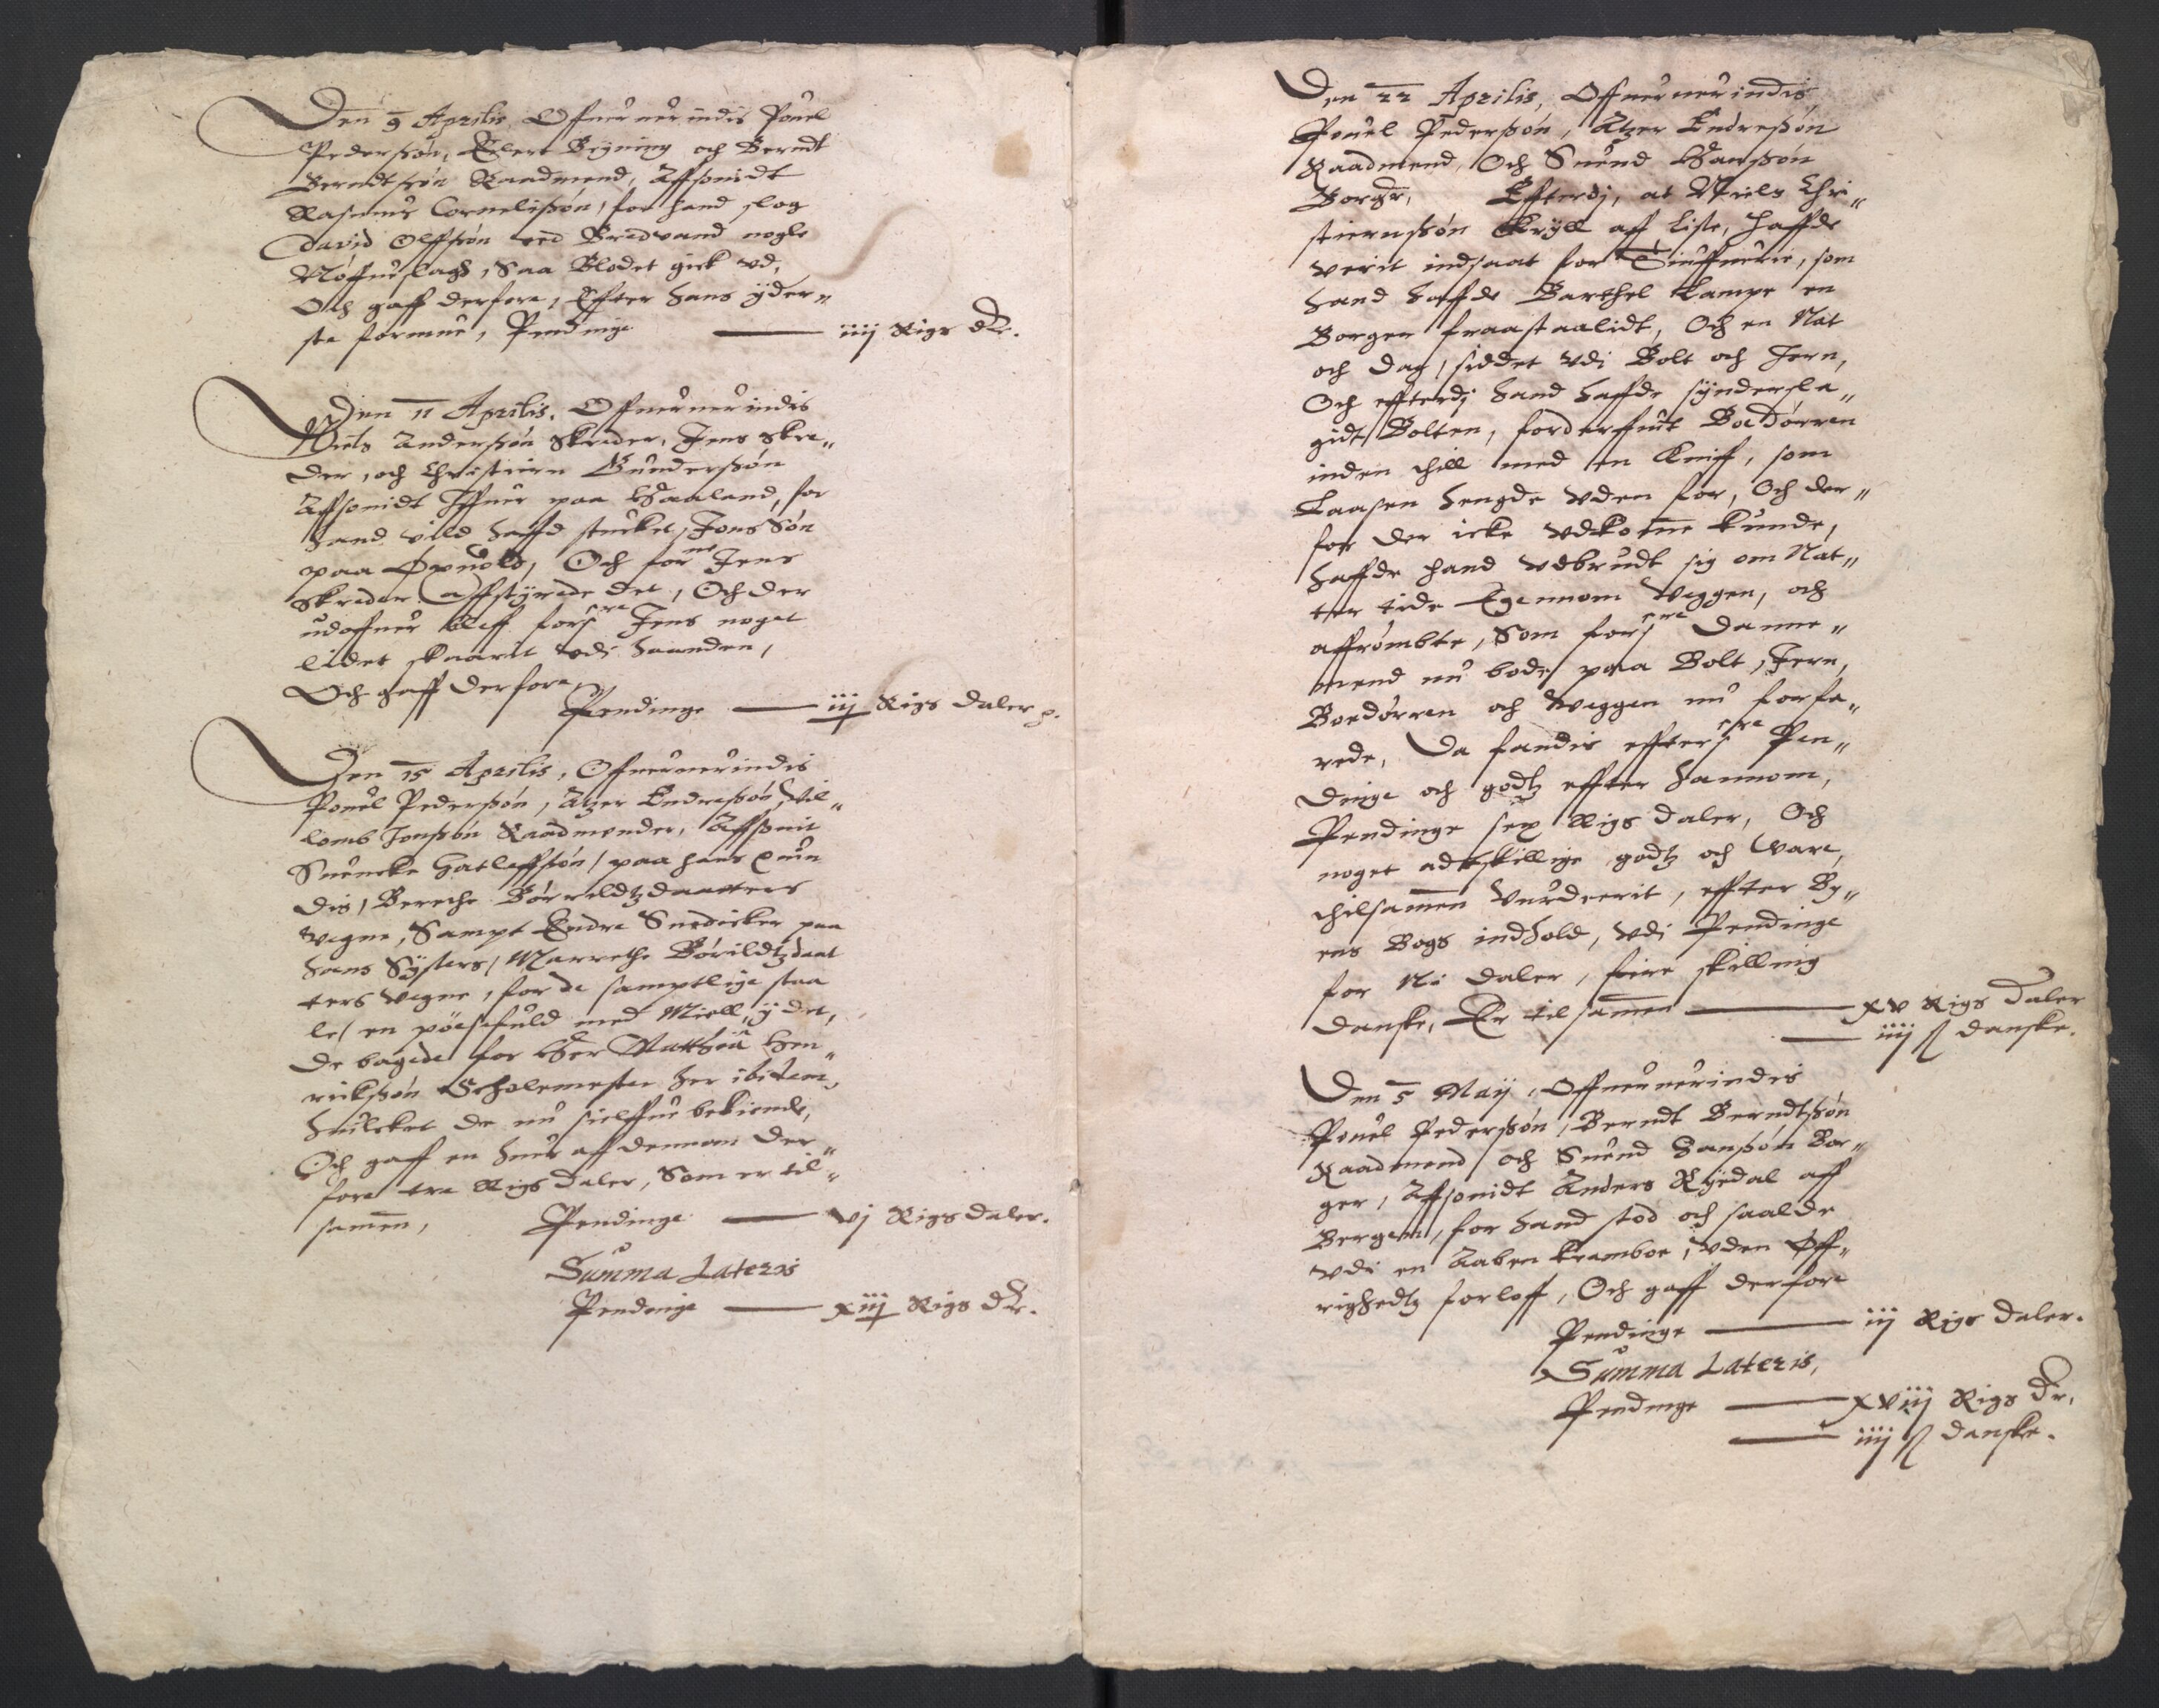 Den 9 Aprilis, Offuer uerindis Pouel
Pederssøn, Eilert Bryning och Berndt
Berndtssøn Raadmend, Affsonidt
Rasmus Cornelissøn, for hand slog
David Olffssøn ved Bredvand nogle
Nøffue slagh, Saa Blodet gick vd,
Och gaff derfore, Effter hans yder„
ste formue, Pendinge — iiij Rigs dlr.
Den 11 Aprilis. Offuer uer indis
Niels Anderssøn Skreder, Jens Skre„
der, och Christiern Gunderssøn
Affsonidt Iffuer paa Haaland, for
hand vild haffd stucket, Jons Søn
paa Opuold, Och forne Jens
Skreder affstyrede det, Och der
udoffuer bleff forscre Jens noget
lidet skaaret vdi haanden,
Och gaff derfore,
Pendinge — iij Rigs daler
Den 15 Aprilis, Offuer uerindis
Pouel Pederssøn, Atzer Endressøn, Vil„
lomb Jonssøn Raadmender, Affsonit
Suencke Gatleffssøn, paa hans Quin
dis, Berethe Børrildtz daatters
Vegne, Sampt Endre Snedicker paa
hans Systers, Marrethe Børildtz daat
ters Vegne, for de samptlige staa
le, en pøesefuld med Miell, y det,
de bagede for Her Matthia Hen„
rickssøn Scholemester her ibidem,
huilcket de nu sielffue bekiende,
Och gaff en huer aff dennom der„
fore tre Rigs daler, Som er til„
samen, Pendinge — vj Rigs daler.
Summa Lateris
Pendinge — xiij Rigs dlr.
Den 22 Aprilis, Offuer uerindis
Pouel Pederssøn, Atzer Endressøn
Raadmend, Och Suend Hanssøn
Borger, Effterdj, at Niels Chri„
stiernssøn Kryll aff Liste, haffde
verit indsaat for Tiuffuerie, som
hand haffde Barthel Kampe en
Borger fraastaalidt, Och en Nat
och dag, siddet vdi Bolt och Jern,
Och effterdj hand haffde syndersla„
gidt Bolten, forderffuit Boedørren
inden till med en Kniff, som
Laasen hengde vden for, Och der„
for der icke vdkomme kunde,
haffde hand vdbrudt sig om Nat„
ter tide Egennom Veggen, och
affrømbte, Som forscre Danne„
mend nu bode paa Bolt, Jern,
Boedørren och Veggen nu forfa„
rede, Da fandis effterscre Pen„
dinge och godtz effter hannom,
Pendinge sex Rigs daler, Och
noget adtskillige godtz och Vare,
thilsamen Vurderit, effter By„
ens Bogs indhold, vdi Pendinge
for Ni daler, fire skilling
danske, Er tilsamen — xv Rigs daler
— iiij ß danske.
Den 5 Maij, Offuer uerindis
Pouel Pederssøn, Berndt Berndtssøn
Raadmend och Suend Hanssøn Bor„
ger, Affsonidt Anders Rysdal aff
Bergen, for hand stod och saalde
vdi en Aaben kramboe, vden Øff„
righedtz forloff, Och gaff derfore
Pendinge — iij Rigs daler.
Summa Lateris,
Pendinge — xviij Rigs dr,
— iiij ß danske.